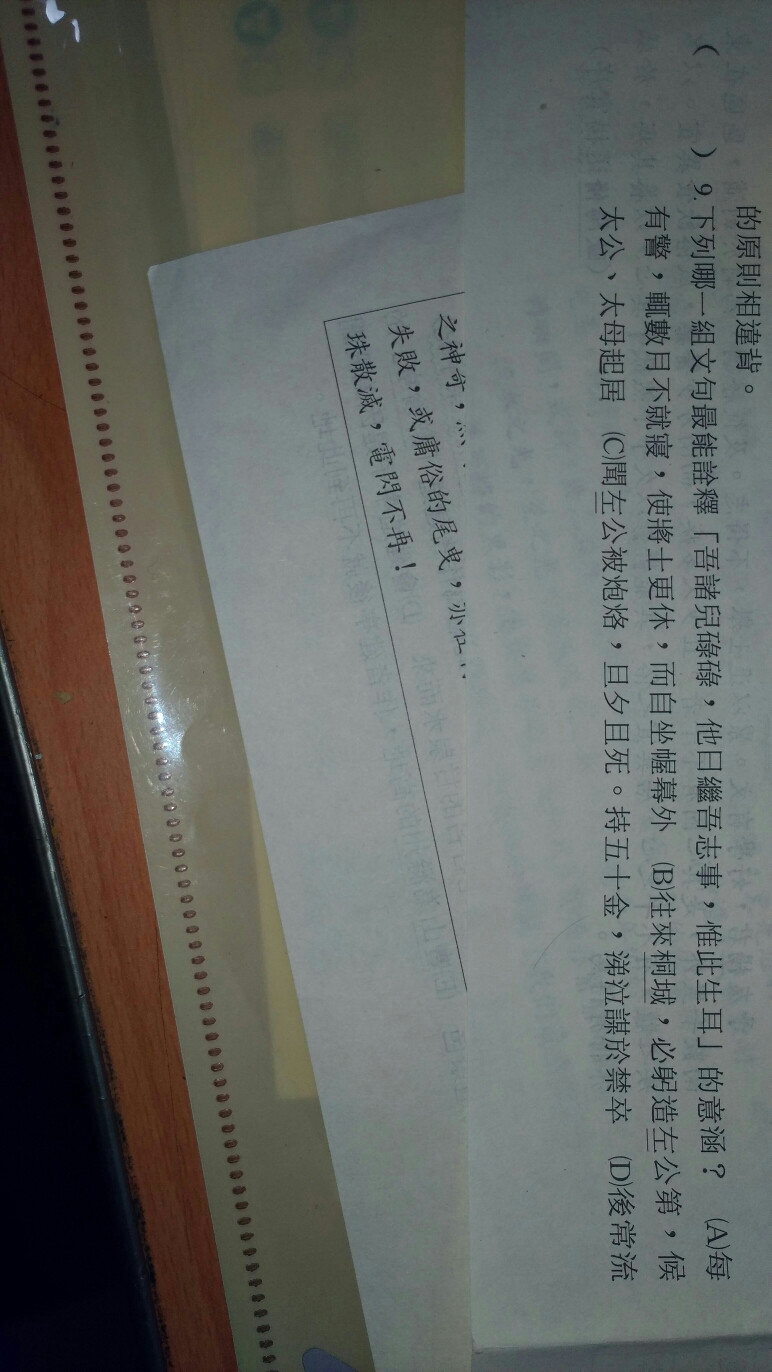 的原則相違背。
(　　) 9.下列哪一組文句最能詮釋「吾諸兒碌碌，他日繼吾志事，惟此生耳」的意涵？　(A)每
有警，輒數月不就寢，使將士更休，而自坐幄幕外　(B)往來桐城，必躬造左公第，候
太公、太母起居　(C)聞左公被炮烙，旦夕且死。持五十金，涕泣謀於禁卒　(D)後常流
之神奇，
失敗，或庸俗的尾曳，
珠散滅，電閃不再！